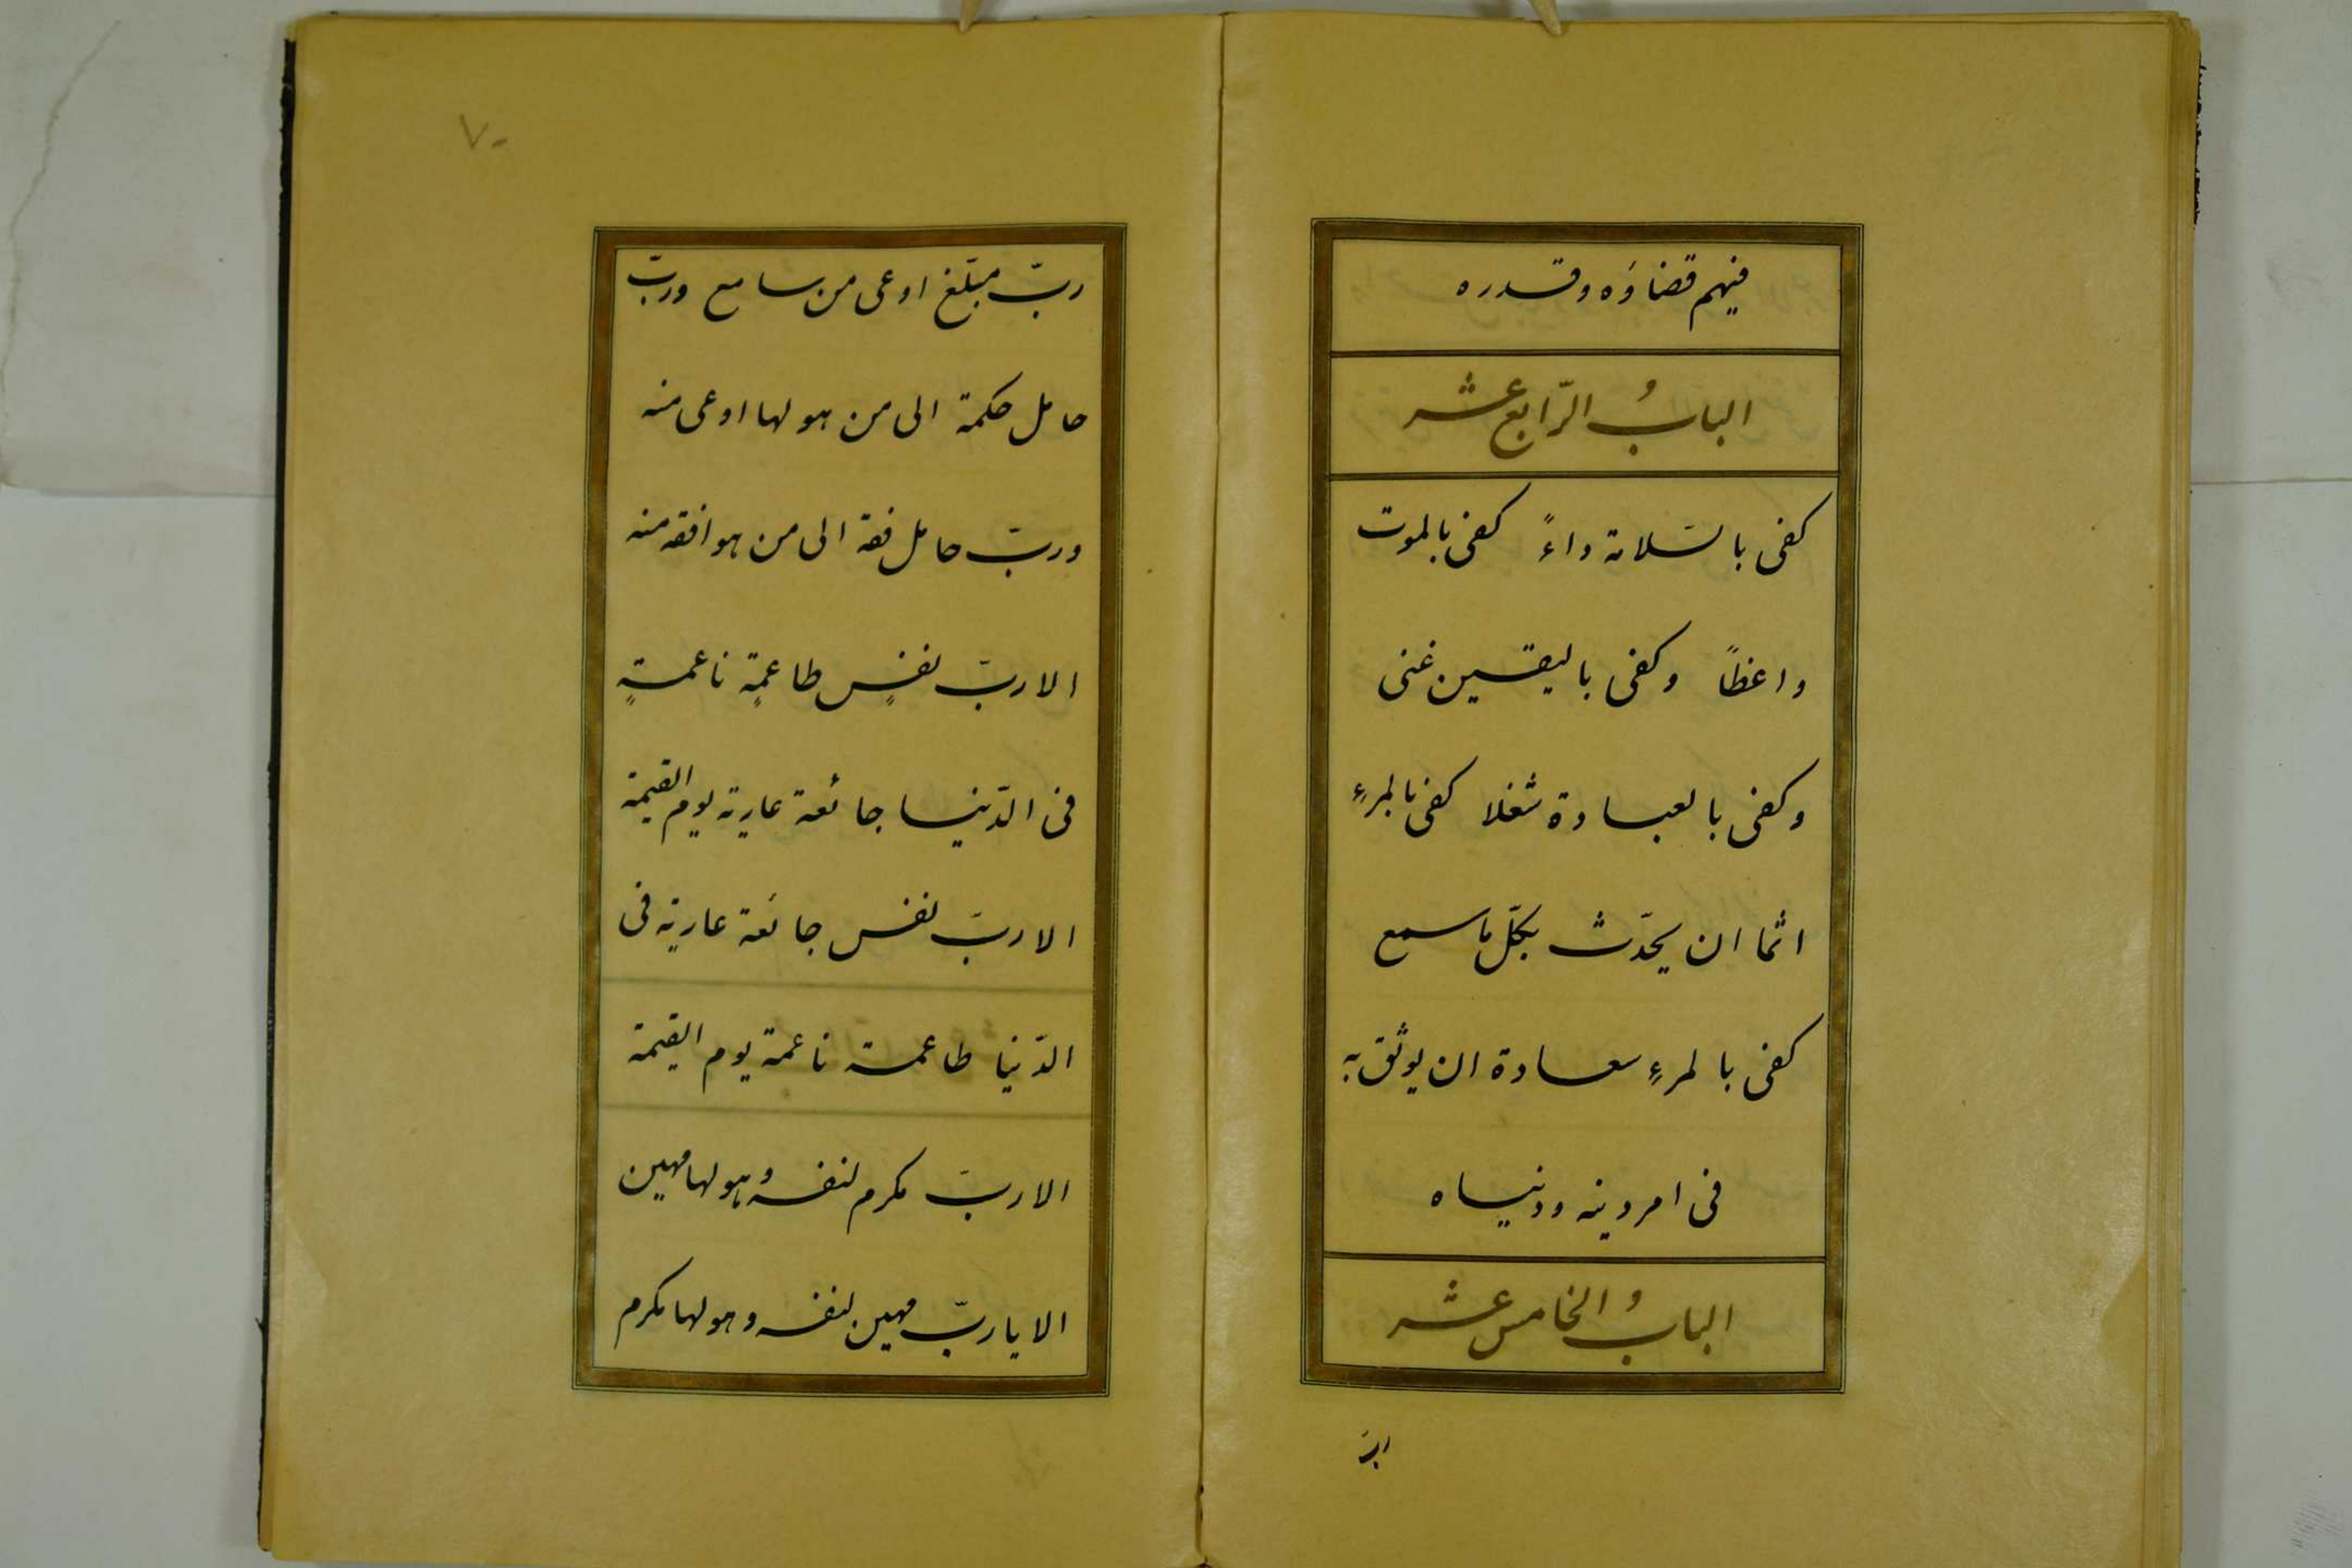 فیهم قضاؤه وقدره
البابُ الرّابع عشر
كفی بالسّلامة داءً كفی بالموت
واعظاً وكفی بالیقین غنی
وكفی بالعبادة شغلا كفی بالمرءِ
اثما ان یحدّث بكلّ ما سمع
كفی بالمرءِ سعادة ان یوثق به
فی امر دینه ودنیاه
البابُ الخامس عشر
ربّ مبلّغ اوعی من سامع وربّ
حامل حكمة الی من هو لها اوعی منه
وربّ حامل فقه الی من هو افقه منه
الا ربّ نفسٍ طاعمةٍ ناعمةٍ
فی الدّنیا جائعة عاریة یوم القیمة
الا ربّ نفس جائعة عاریة فی
الدّنیا طاعمة ناعمة یوم القیمة
الا ربّ مكرم لنفسه وهو لها مهین
الا یا ربّ مهین لنفسه وهو لها مكرم
٧٠